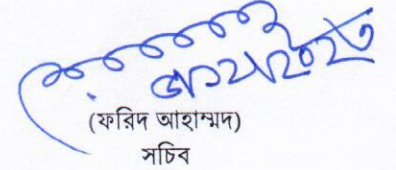 (ফরিদ আহাম্মদ)
সচিব